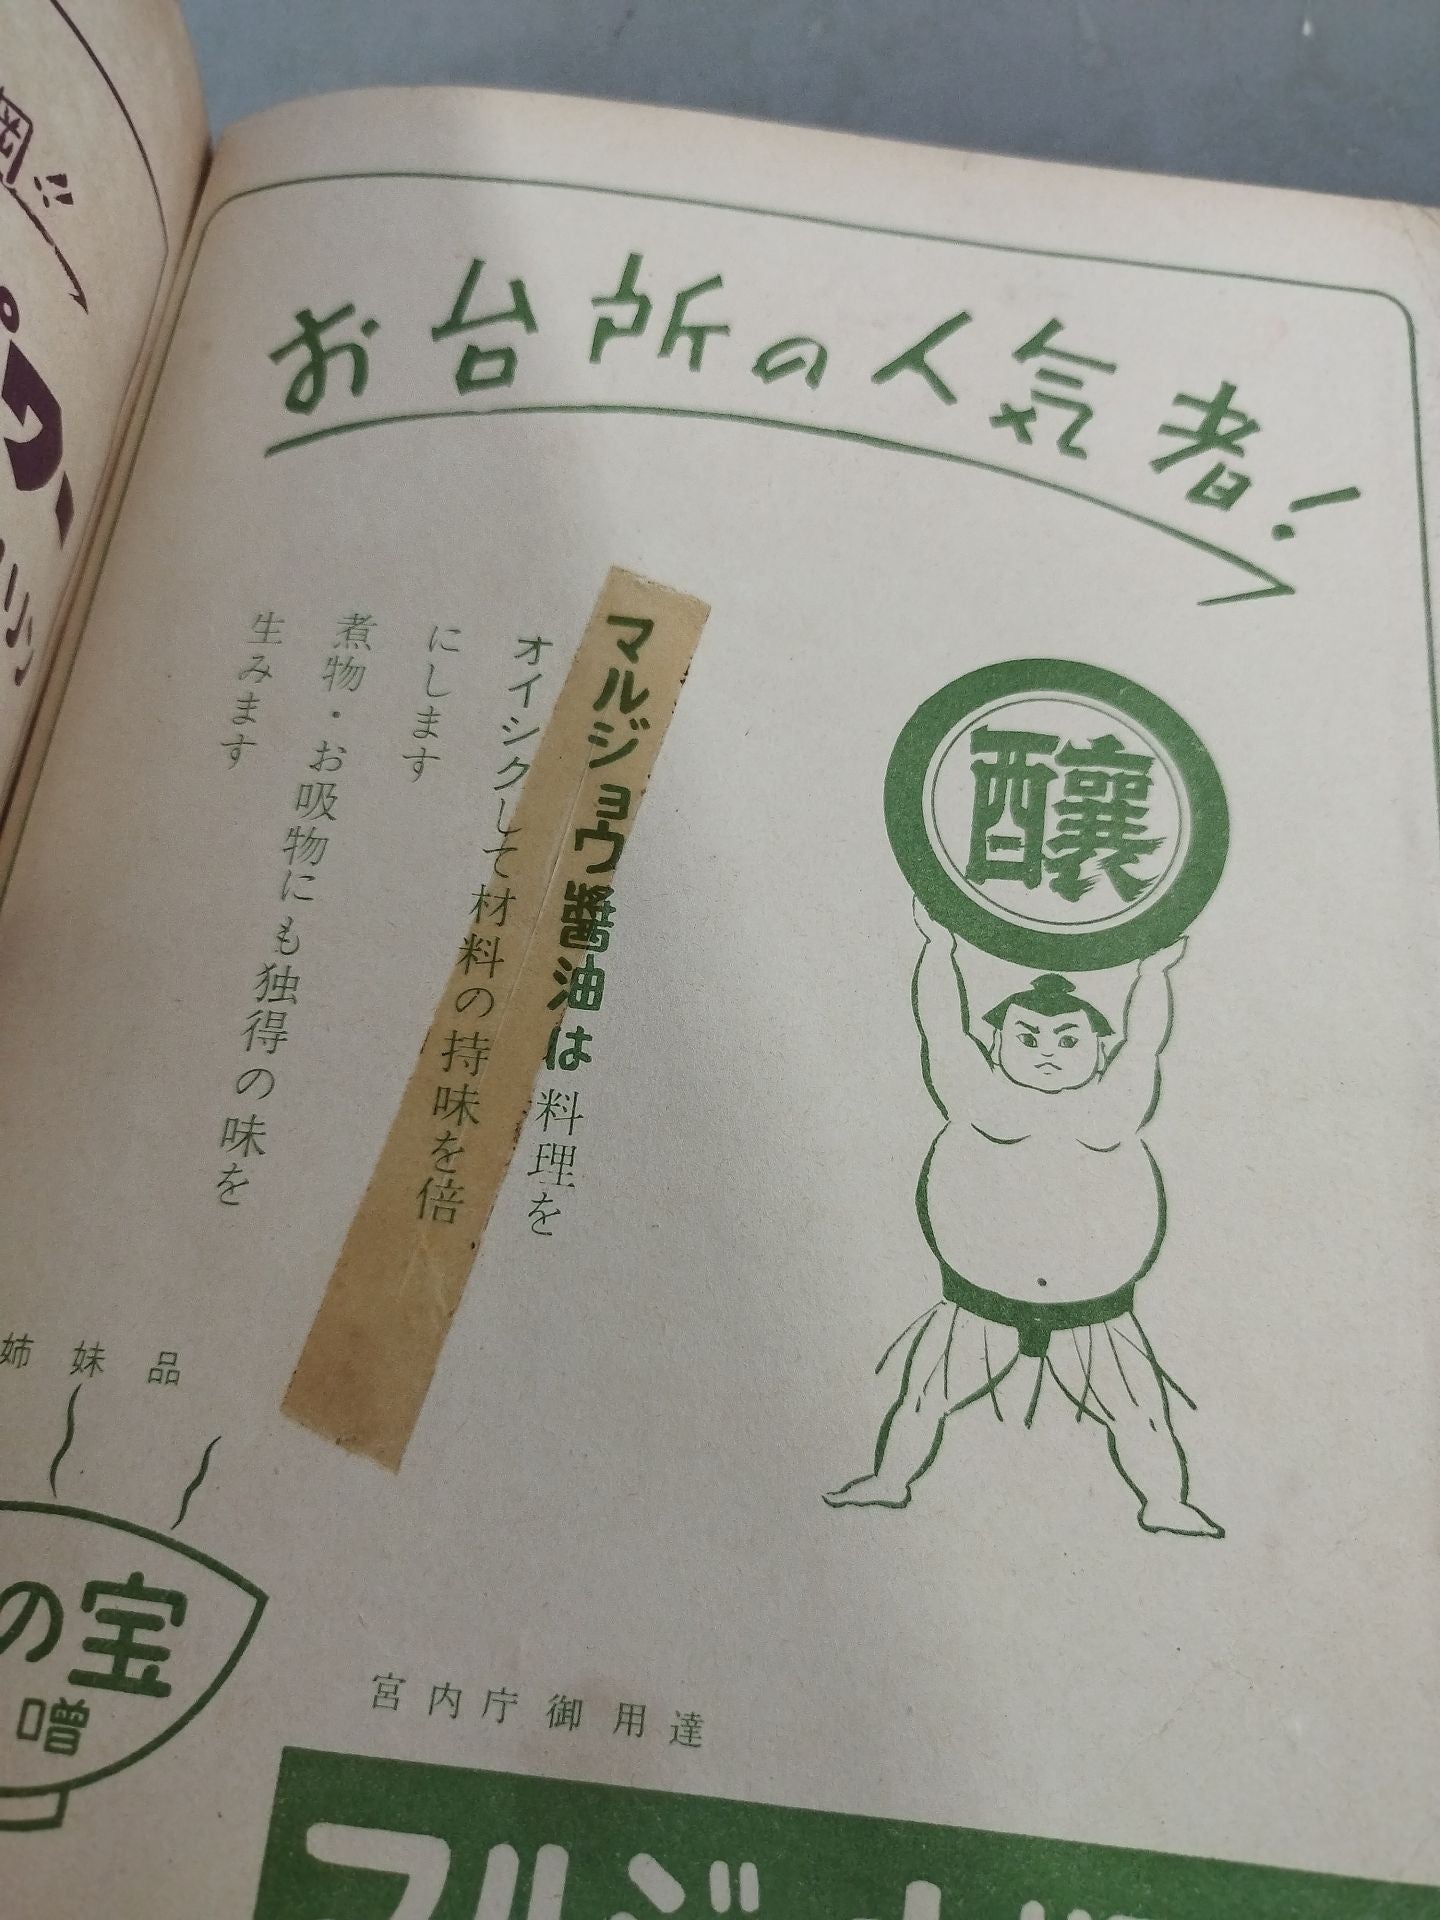 お台所の人気者!
醸
マルジョウ醬油は料理を
オイシクして材料の持味を倍
にします
煮物・お吸物にも独得の味を
生みます
姉妹品
の宝
噌
宮内庁御用達
マルジョウ